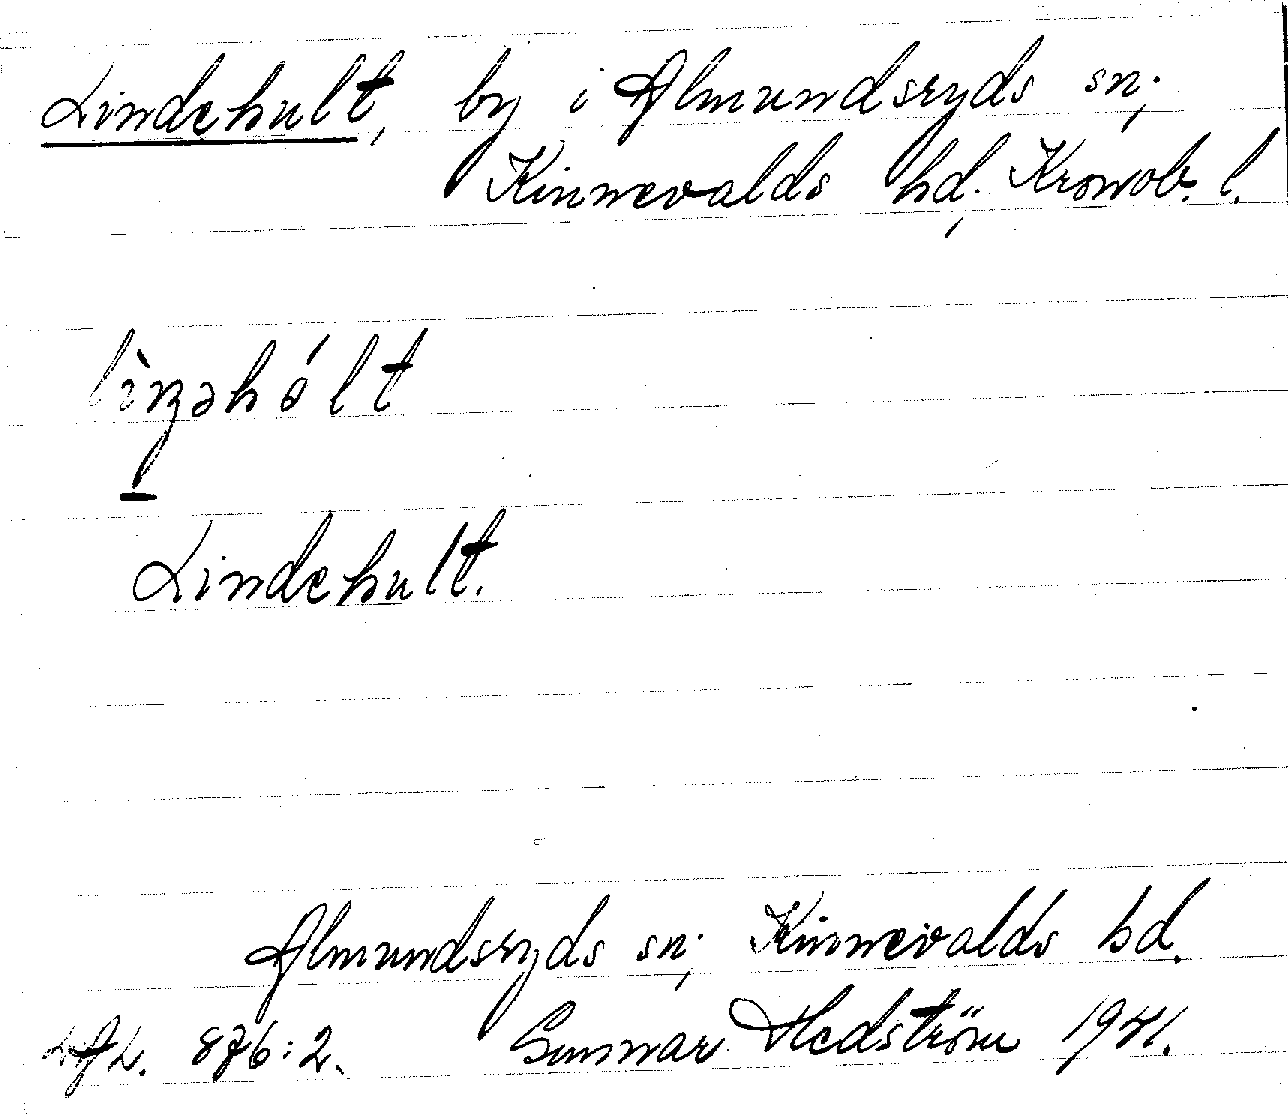 Lindehult, by i Almundsryds sn;
Kinnevalds hd; Kronob. l.
lìnəhólt
Lindehult.
Almundsryds sn; Kinnevalds hd.
LAL. 876:2. Gunnar Hedström 1941.